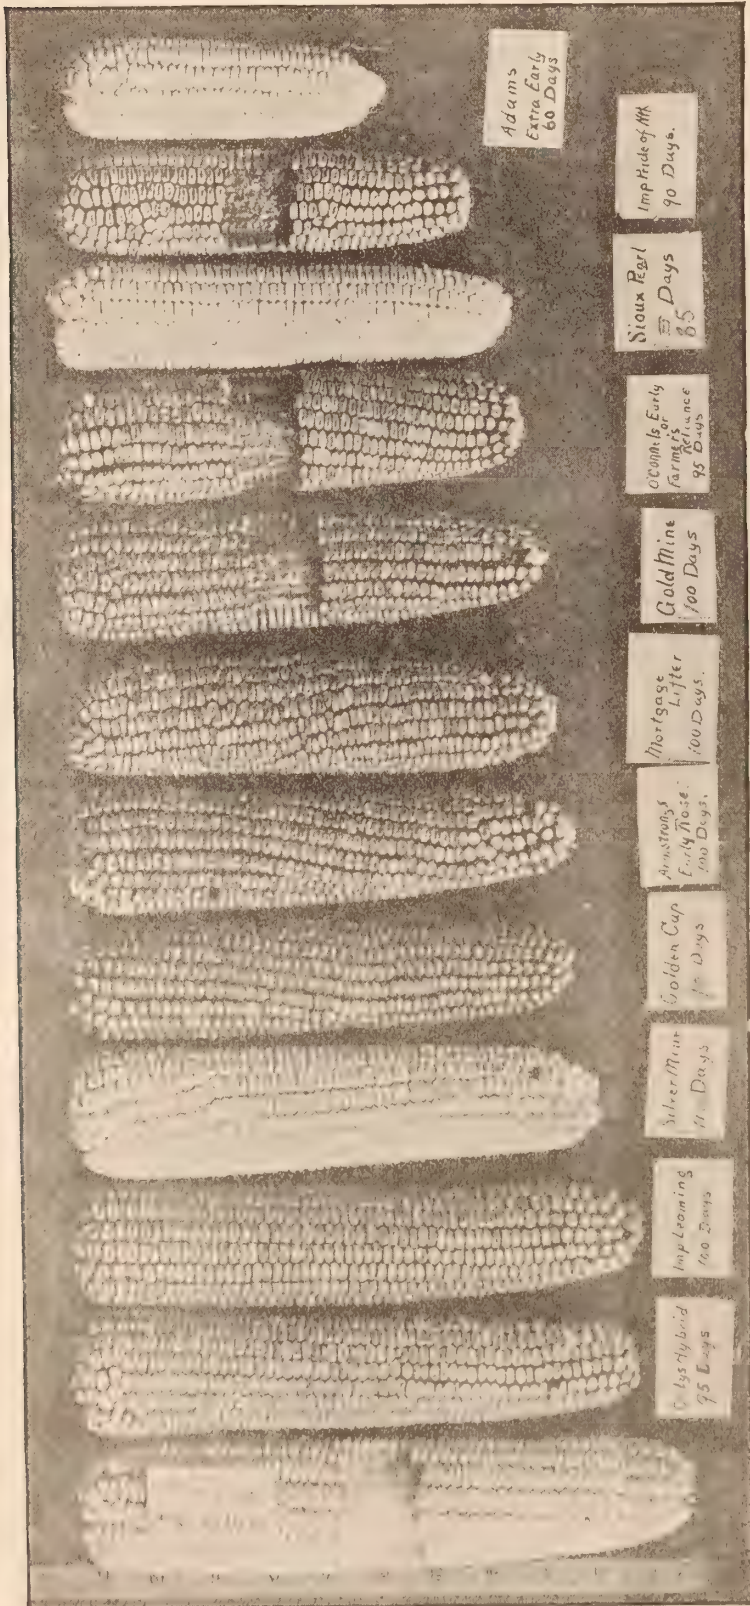 Adams
Extra Early
60 Days
Imp Pride of
90 Days.
Sioux Pearl
Days
85
O'Connels Early
or
Farmer's
Reliance
95 Days
Gold Mine
100 Days
Mortgage
Lifter
100 Days.
Armstrongs
Early Rose.
100 Days.
Golden Cap
Days
Silver Mine
Days
Imp Leaming
100 Days
Hybrid
95 Days